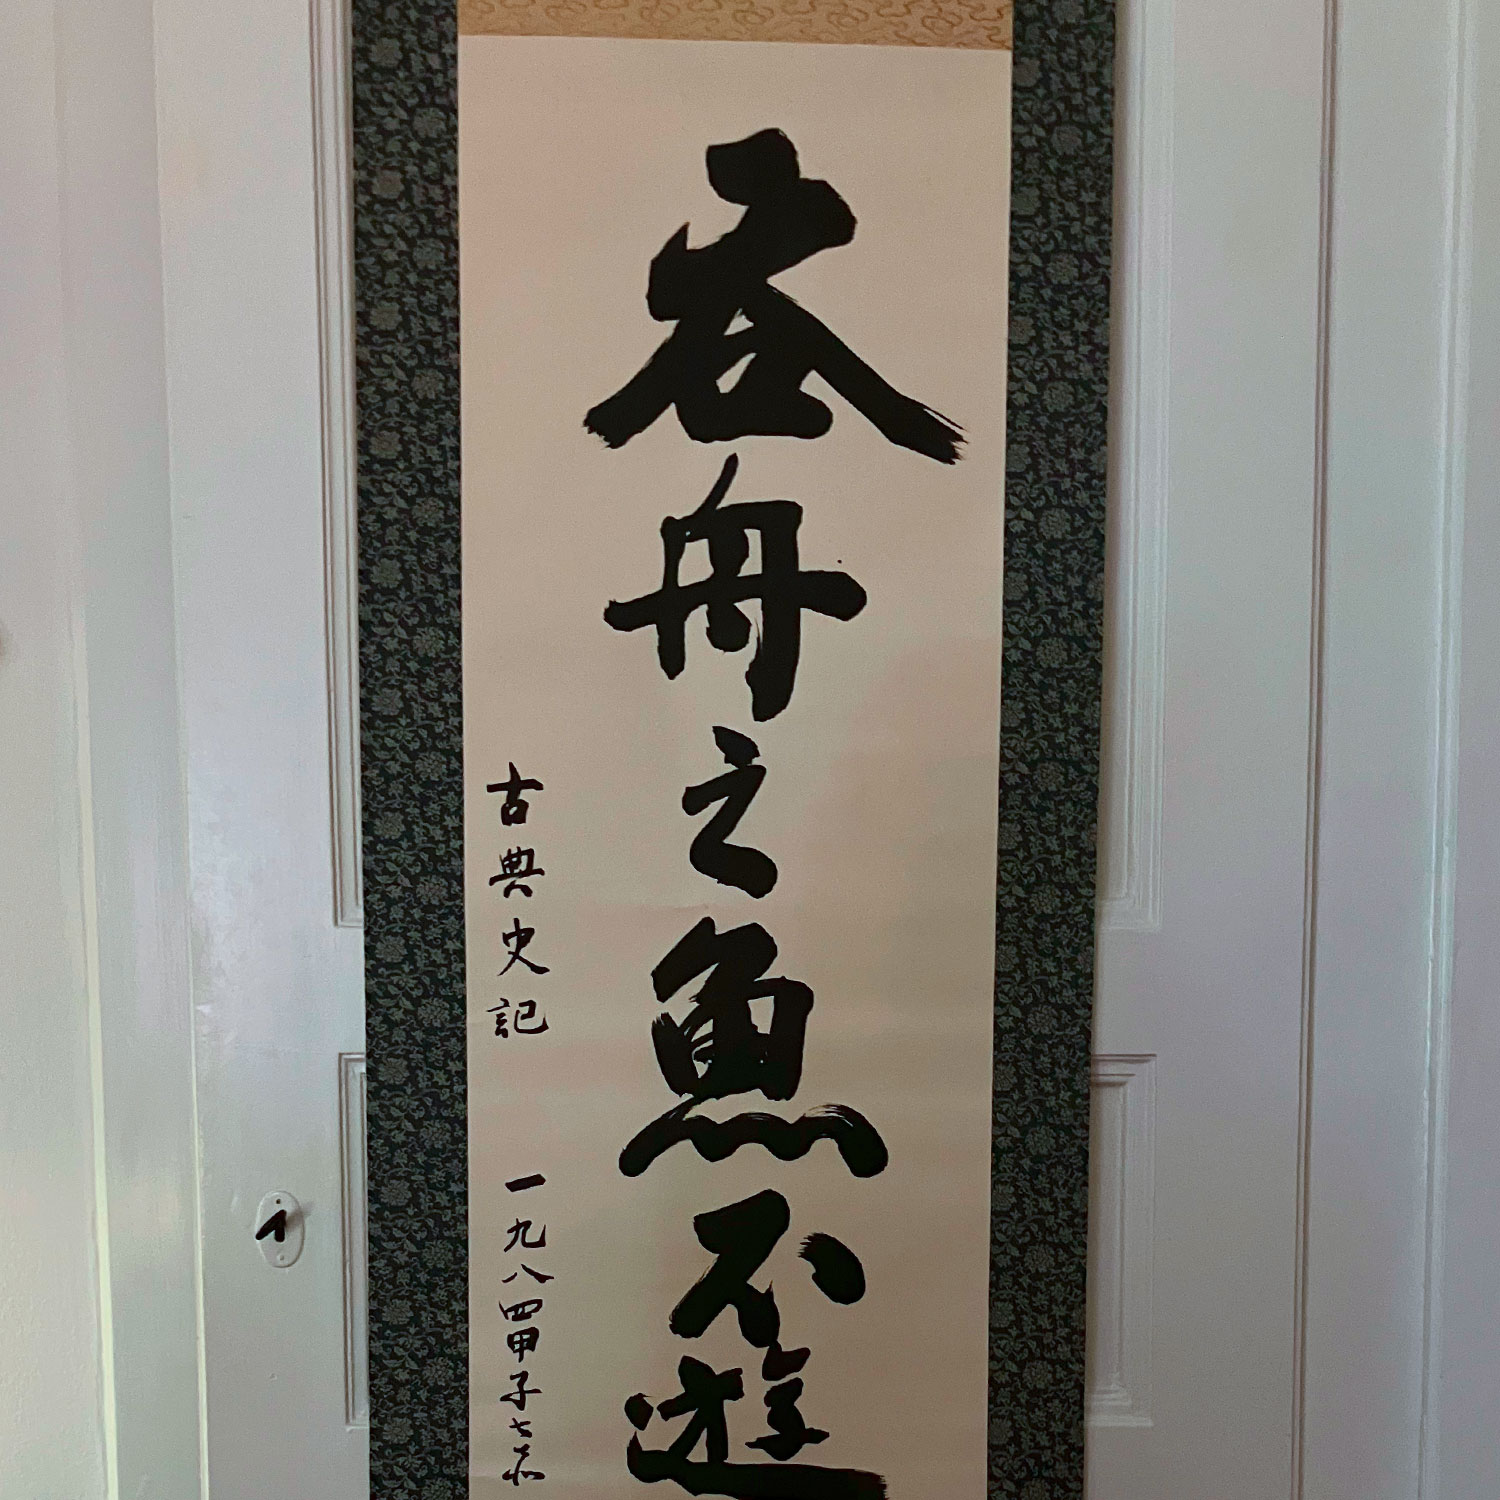 吞舟之魚不遊
古典史記
一九八四甲子七